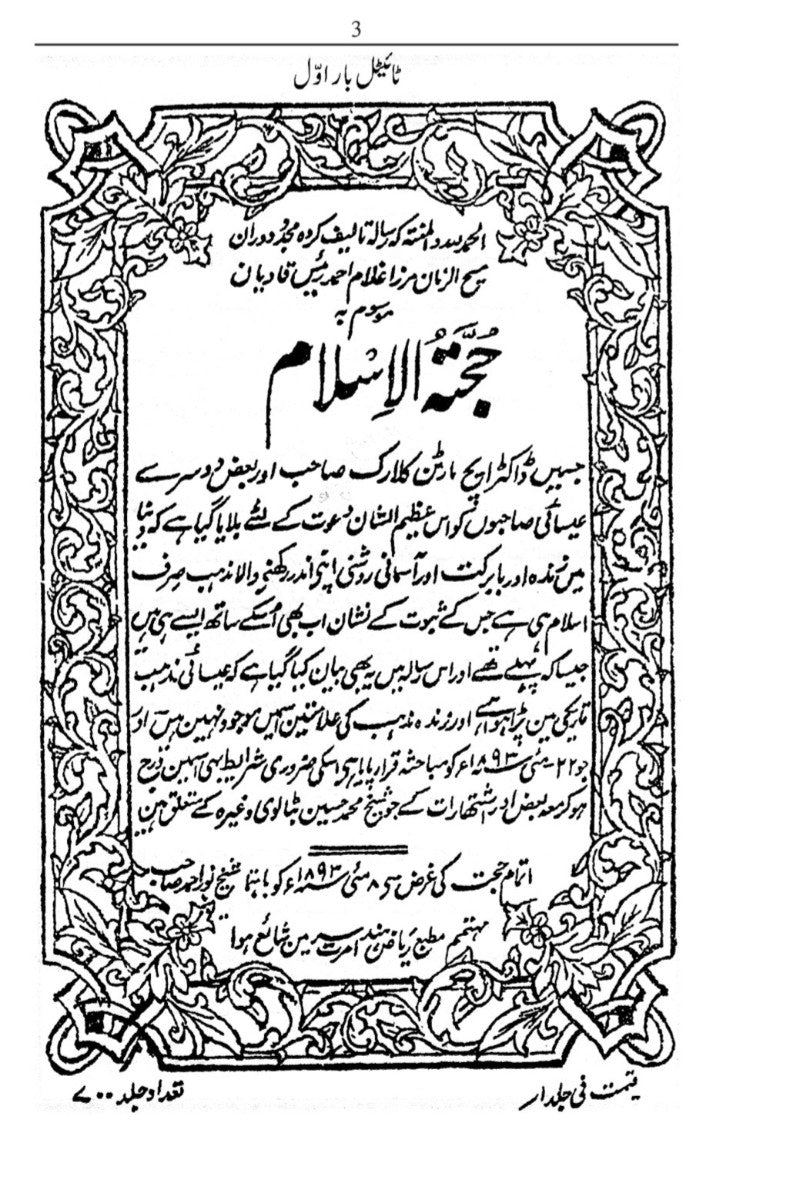 3
ٹائیٹل بار اوّل
الحمدللہ والمنۃ کہ رسالہ تالیف کردہ مجدد دوران
مسیح الزمان مرزا غلام احمد رئیس قادیان
موسوم بہ
حُجَّۃُ الْاِسْلام
جسمیں ڈاکٹر ایچ مارٹن کلارک صاحب اور بعض دوسرے
عیسائی صاحبوں کو اس عظیم الشان دعوت کے لئے بلایا گیا ہے کہ دنیا
میں زندہ اور بابرکت اور آسمانی روشنی اپنی اندر رکھنے والا مذہب صرف
اسلام ہی ہے جس کے ثبوت کے نشان اب بھی اُسکے ساتھ ایسے ہی ہیں
جیسا کہ پہلے تھے اور اس رسالہ میں یہ بھی بیان کیا گیا ہے کہ عیسائی مذہب
تاریکی مین پڑا ہوا ہے اور زندہ مذہب کی علامتین اسمیں موجود نہین ہیں اور
جو ۲۲ مئی ۱۸۹۳ء کو مباحثہ قرار پایا ہی اسکی ضروری شرایط بھی اسہین درج
ہو کر معہ بعض اور اشتہارات کے جو شیخ محمد حسین بٹالوی وغیرہ کے متعلق ہین
اتمام حجت کی غرض سے ۸ مئی ۱۸۹۳ء کو باہتمام شیخ نور احمد صاحب
مہتمم مطبع ریاض ہند امرتسر مین شائع ہوا
قیمت فی جلد ۱ر
تعداد جلد ۷۰۰